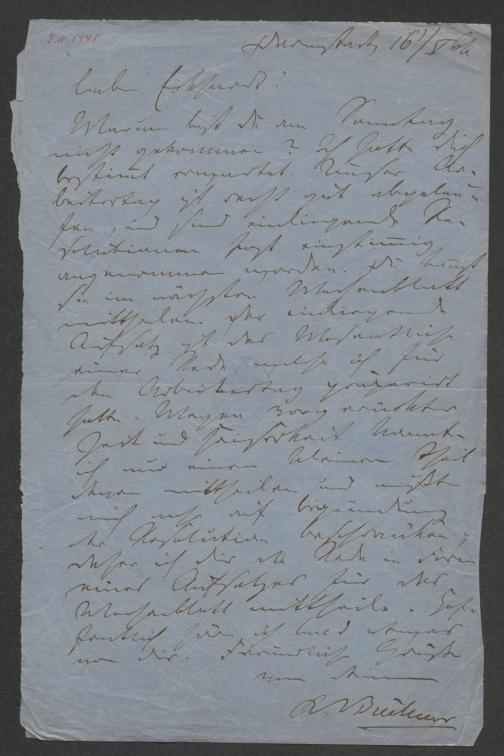 J.N. 1441
Darmstadt 16/V 64
Lieber Eckhardt!
Warum bist du am Sonntag
nicht gekommen? Ich hatte dich
bestimmt erwartet. Unser Ar-
beitertag ist recht gut abgelau-
fen, und sind einliegende Re-
solutionen fast einstimmig
angenommen worden. Du kannst
sie im nächsten Wochenblatt
mittheilen. Der einliegende
Aufsatz ist das Wesentliche
einer Rede welche ich für
den Arbeitertag präparirt
hatte. Wegen vorgerückter
Zeit und Heiserkeit konnte
ich nur einen kleinen Theil
davon mittheilen und mußte
mich mehr auf Begründung
der Resolution beschränken,
daher ich dir die Rede in Form
eines Aufsatzes für das
Wochenblatt mittheile. Hof-
fentlich höre ich bald etwas
von dir. Freundliche Grüße
von deinem
L. Büchner